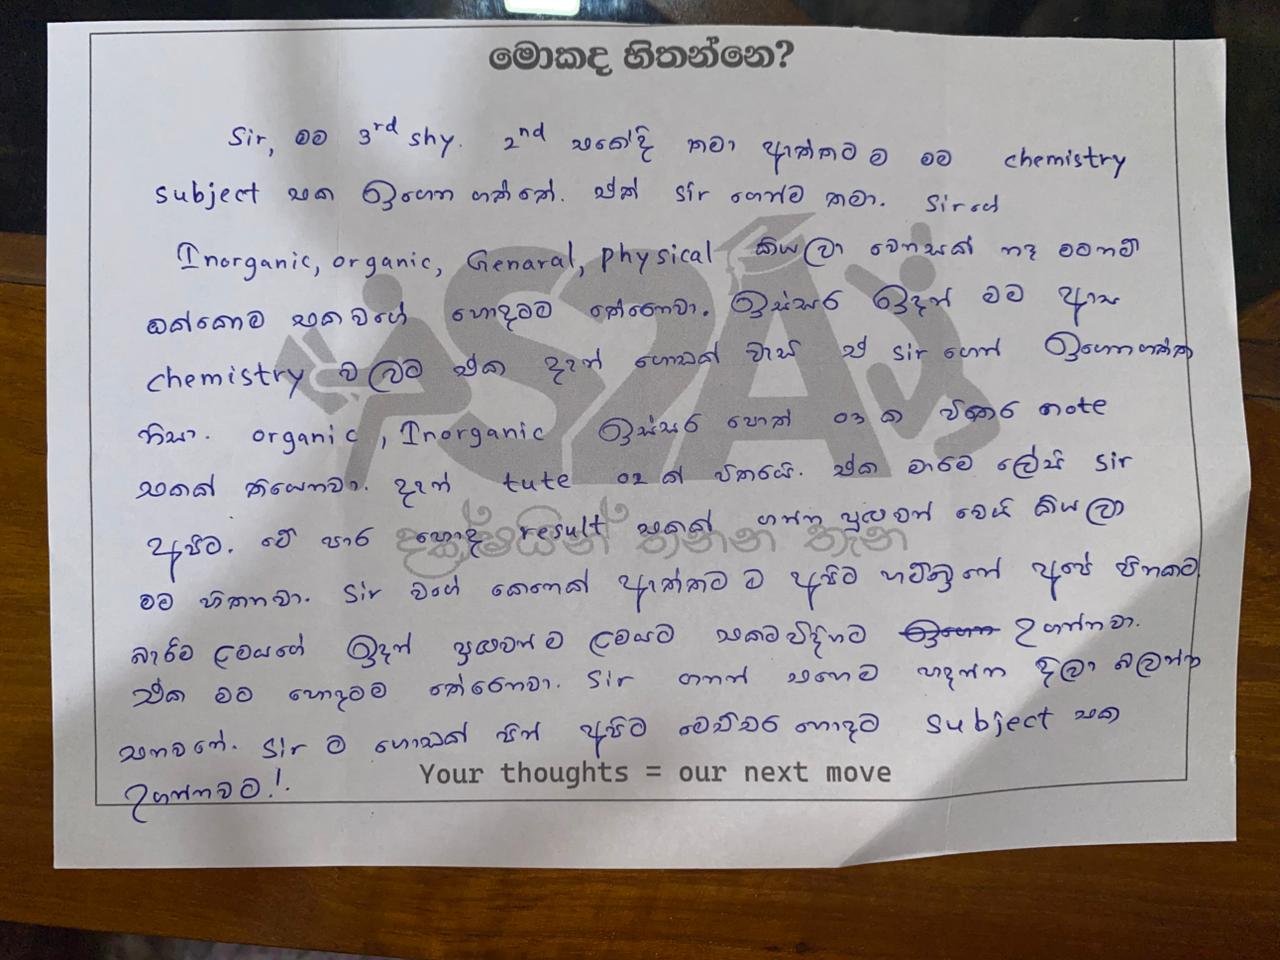 මොකද හිතන්නෙ?
Sir, මම 3rd shy. 2nd එකේදි තමා ඇත්තටම මම chemistry
subject එක ඉගෙන ගත්තේ. ඒත් sir ගෙන්ම තමා. Sirගේ
Inorganic, organic, Genaral, physical කියලා වෙනසක් නෑ මටනම්
ඔක්කොම එකවගේ හොදටම තේරෙනවා. ඉස්සර ඉදන් මම ආස
chemistry වලටම ඒක දැන් ගොඩක් වැඩි ඒ sir ගෙන් ඉගෙනගත්ත
නිසා. organic, Inorganic ඉස්සර පොත් 03 ක විතර note
එකක් තියෙනවා. දැන් tute 02 ක් විතරයි. ඒක මාරම ලේසි sir
අපිට. මේ පාර හොද result එකක් ගන්න පුළුවන් වෙයි කියලා
දක්ෂයින් තනන තැන
මම හිතනවා. Sir වගේ කෙනෙක් ඇත්තටම අපිට හම්බුනේ අපේ පිනකට
බැරිම ළමයගේ ඉදන් පුළුවන්ම ළමයට එකම විදිහට ඉගෙන උගන්නවා.
ඒක මට හොදටම තේරෙනවා. Sir ගානත් එහෙම හදන්න දීලා බලන්න
එනවනේ. Sir ට ගොඩක් පින් අපිට මෙච්චර හොදට subject එක
Your thoughts = our next move
උගන්නවට!.